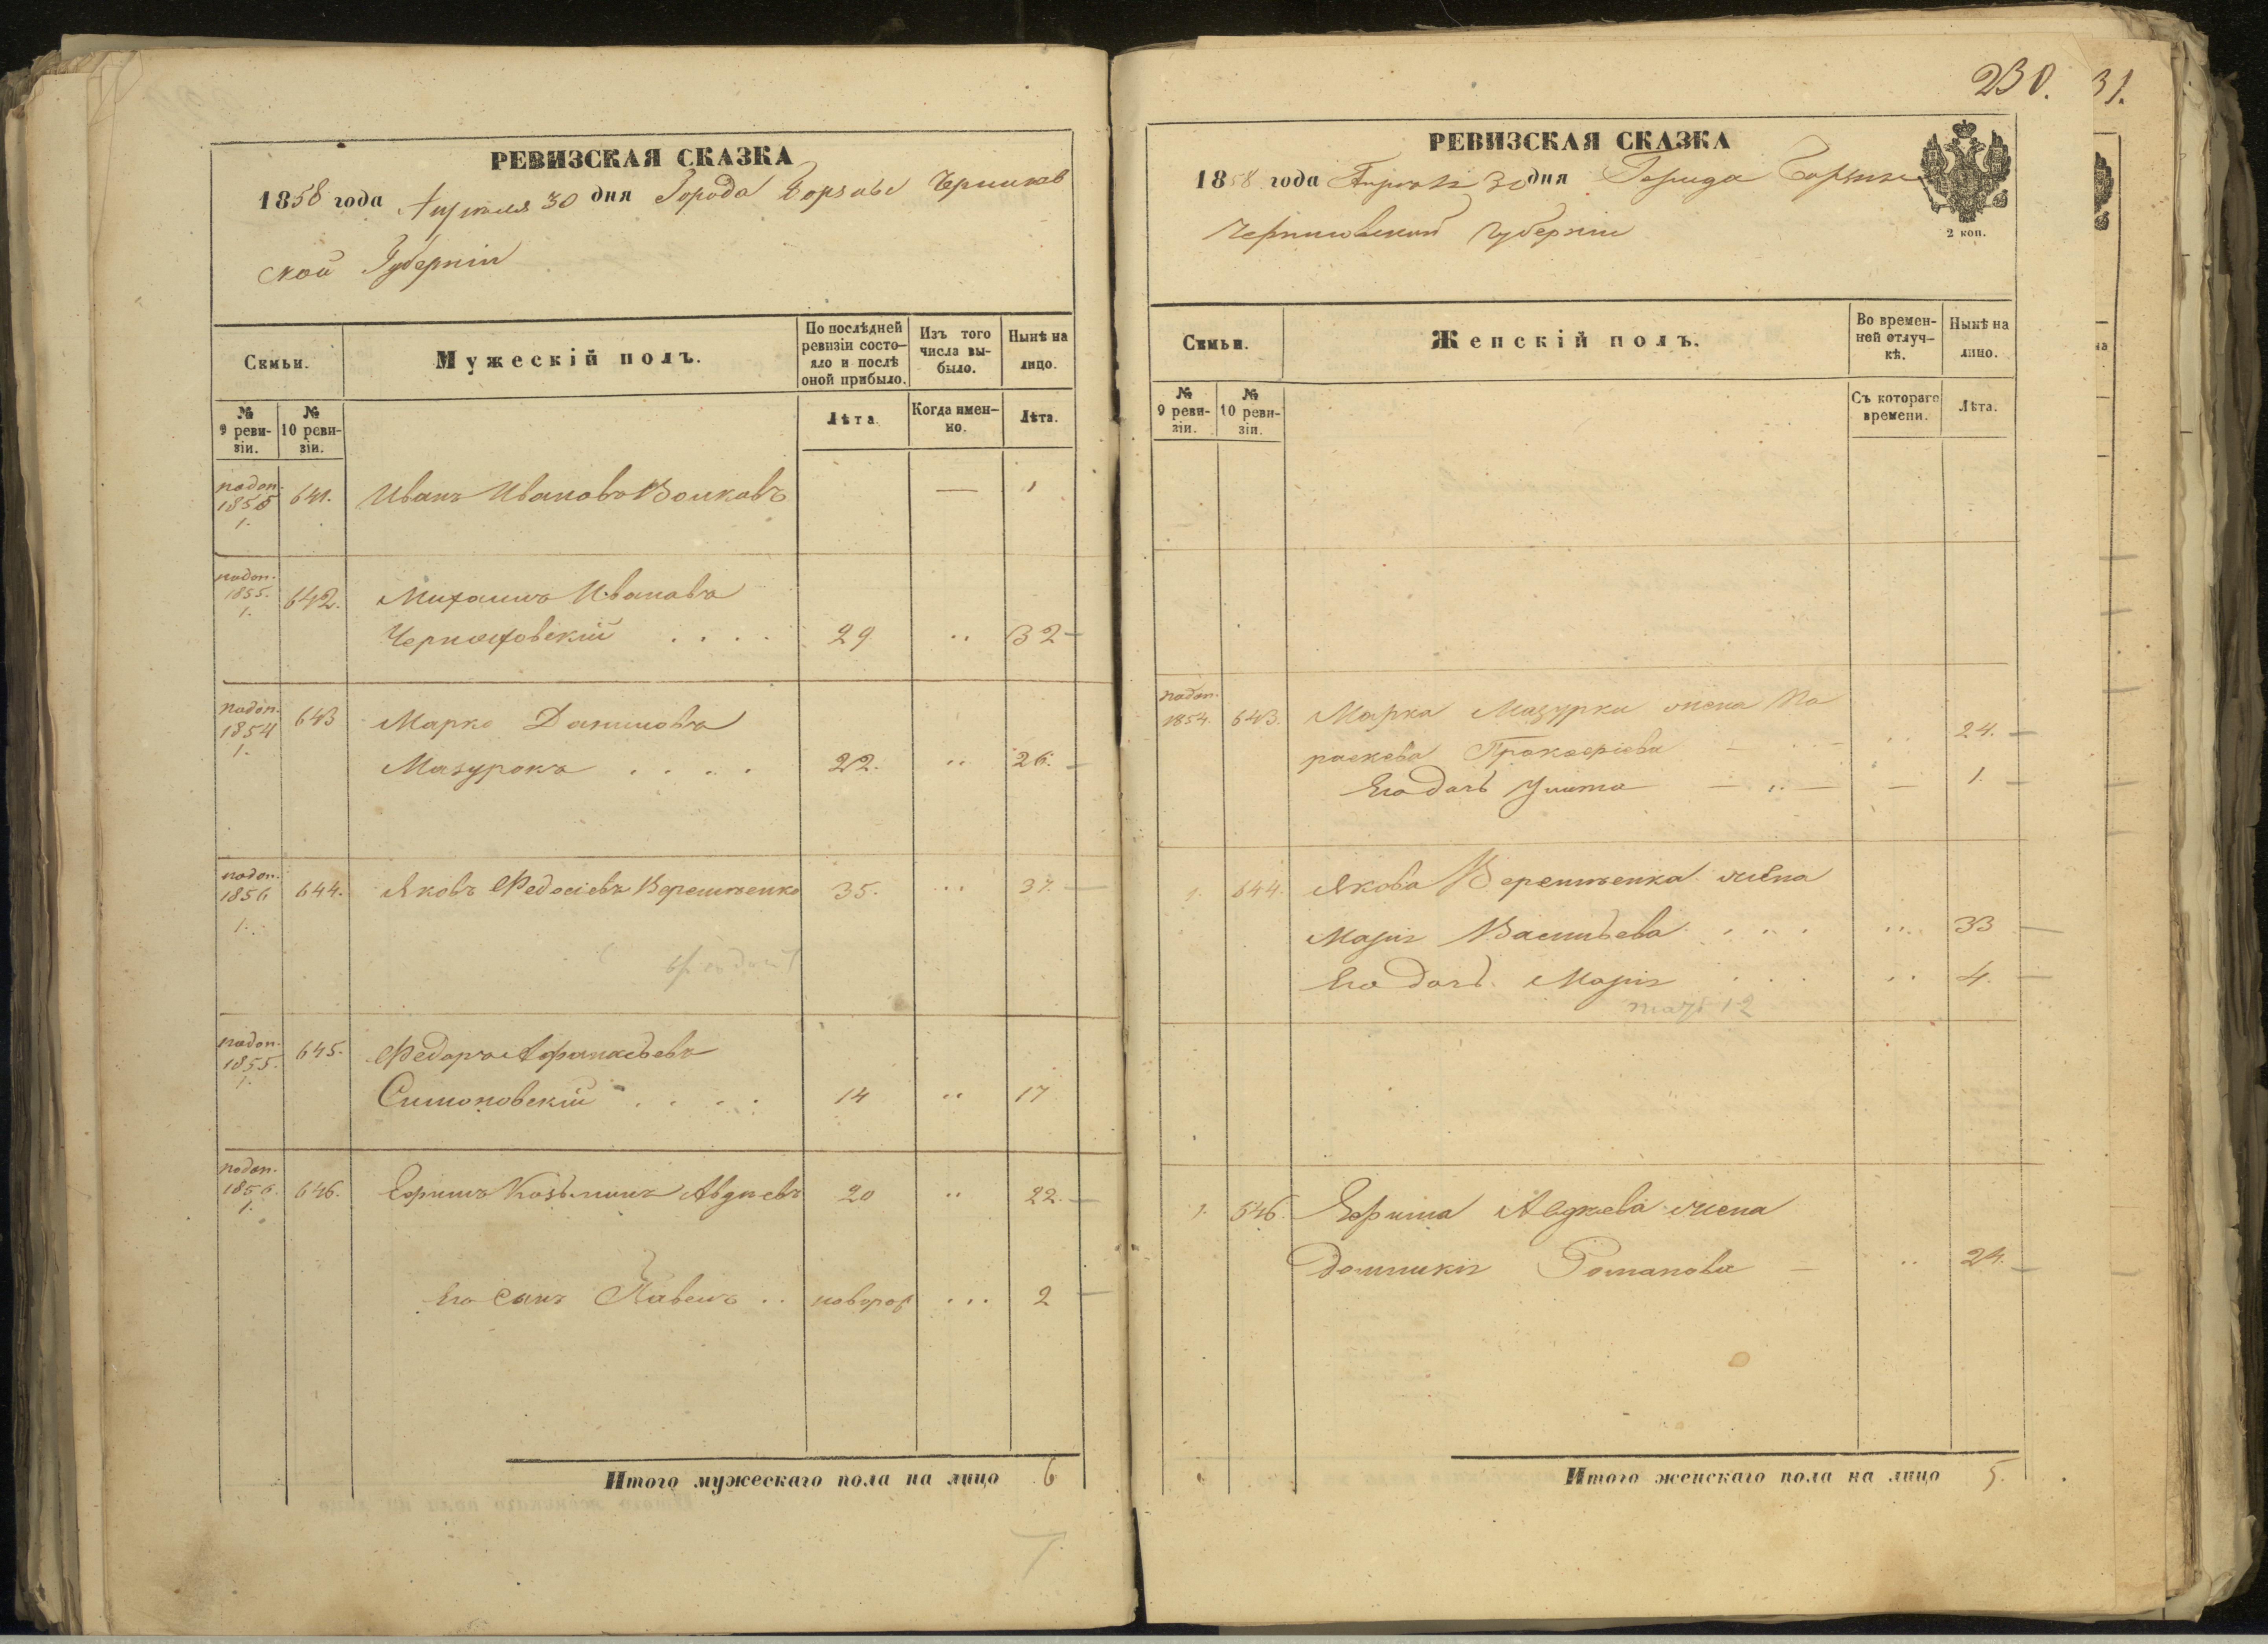 230.
31.
РЕВИЗСКАЯ СКАЗКА
1858 года Апреля 30 дня Города Борзны Чернигов
ской Губерніи
Семьи.
Мужескій полъ.
По послѣдней ревизіи состояло и послѣ оной прибыло.
Изъ того числа выбыло.
Нынѣ на лицо.
№ 9 ревизіи.
№ 10 ревизіи.
Лѣта.
Когда именно.
Лѣта.
подоп. 1855 1. 641. Иванъ Ивановъ Волковъ — 1
подоп. 1855. 1. 642. Михаилъ Ивановъ
Черноховскій . . . . 29 .. 32 —
подоп. 1854 1. 643 Марко Даниловъ
Мазурокъ . . . . 22. .. 26. —
подоп. 1856 1. 644. Яковъ Федосіевъ Верещенко 35. ... 37. —
подоп. 1855. 1. 645. Федоръ Афанасьевъ
Симоновскій . . . . 14 .. 17
подоп. 1856. 1. 646. Ефимъ Козьминъ Авдіевъ 20 .. 22. —
Его сынъ Павелъ .. новорож ... 2 —
Итого мужескаго пола на лицо 6
7
РЕВИЗСКАЯ СКАЗКА
1858 года Апреля 30 дня Города Борзны
Черниговской Губерніи
2 коп.
Семьи.
Женскій полъ.
Во временной отлучкѣ.
Нынѣ на лицо.
№ 9 ревизіи.
№ 10 ревизіи.
Съ котораго времени.
Лѣта.
подоп. 1854. 643. Марка Мазурки жена Па
раскева Прокофіева — .. 24. —
Его дочь Улита — .. — — 1. —
1. 644. Якова Верещенка жена
Марія Васильева . . . ... 33 —
Его дочь Марія . . .. 4. —
1. 546. Ефима Авдіева жена
Домникія Романова — .. 24. —
Итого женскаго пола на лицо 5.